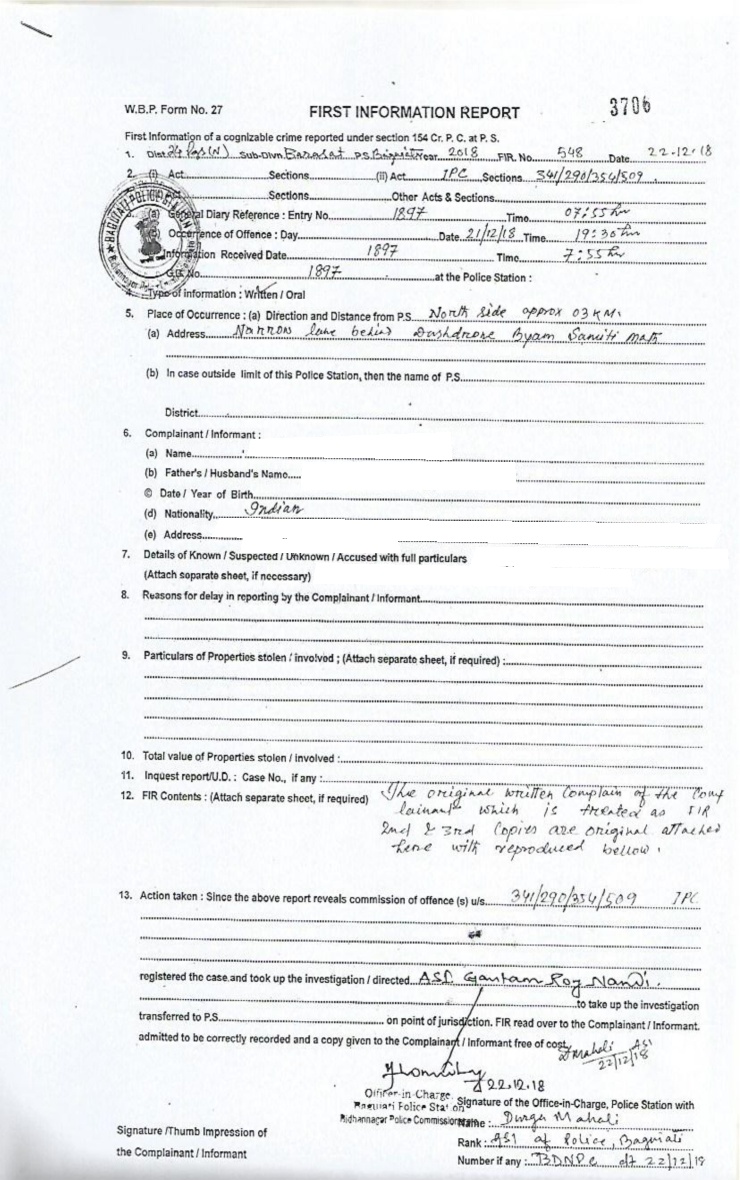 W.B.P. Form No. 27
FIRST INFORMATION REPORT
3706
First Information of a cognizable crime reported under section 154 Cr. P. C. at P. S.
1. Dist 24 Pgs (N) Sub-Divn. Barasat P.S. Baguiati Year 2018 FIR. No. 548 Date 22-12-18
2. (i) Act Sections (ii) Act IPC Sections 341/290/354/509
Sections Other Acts & Sections
(a) General Diary Reference : Entry No. 1897 Time 07:55 hr
Occurrence of Offence : Day Date 21/12/18 Time 19:30 hr
Information Received Date 1897 Time 7:55 hr
G.D. No. 1897 at the Police Station :
Type of information : Written / Oral
5. Place of Occurrence : (a) Direction and Distance from P.S. North side approx 03 KM.
(a) Address Narrow lane behind Dashdrone Byam Samiti math
(b) In case outside limit of this Police Station, then the name of P.S.
District
6. Complainant / Informant :
(a) Name
(b) Father's / Husband's Name
© Date / Year of Birth
(d) Nationality Indian
(e) Address
7. Details of Known / Suspected / Unknown / Accused with full particulars
(Attach separate sheet, if necessary)
8. Reasons for delay in reporting by the Complainant / Informant
9. Particulars of Properties stolen / involved ; (Attach separate sheet, if required) :
10. Total value of Properties stolen / involved :
11. Inquest report/U.D. : Case No., if any :
12. FIR Contents : (Attach separate sheet, if required) The original written Complain of the Comp
lainant which is treated as FIR
2nd & 3rd Copies are original attached
here with reproduced bellow.
13. Action taken : Since the above report reveals commission of offence (s) u/s 341/290/354/509 IPC
registered the case and took up the investigation / directed ASI Gautam Roy Nandi.
to take up the investigation
transferred to P.S. on point of jurisdiction. FIR read over to the Complainant / Informant.
admitted to be correctly recorded and a copy given to the Complainant / Informant free of cost.
DMahali ASI
22/12/18
22.12.18
Officer-in-Charge
Baguiati Police Station
Bidhannagar Police Commissionerate
Signature of the Office-in-Charge, Police Station with
Name : Durga Mahali
Rank : ASI of Police, Baguiati
Number if any : BDNPC dt 22/12/18
Signature /Thumb Impression of
the Complainant / Informant